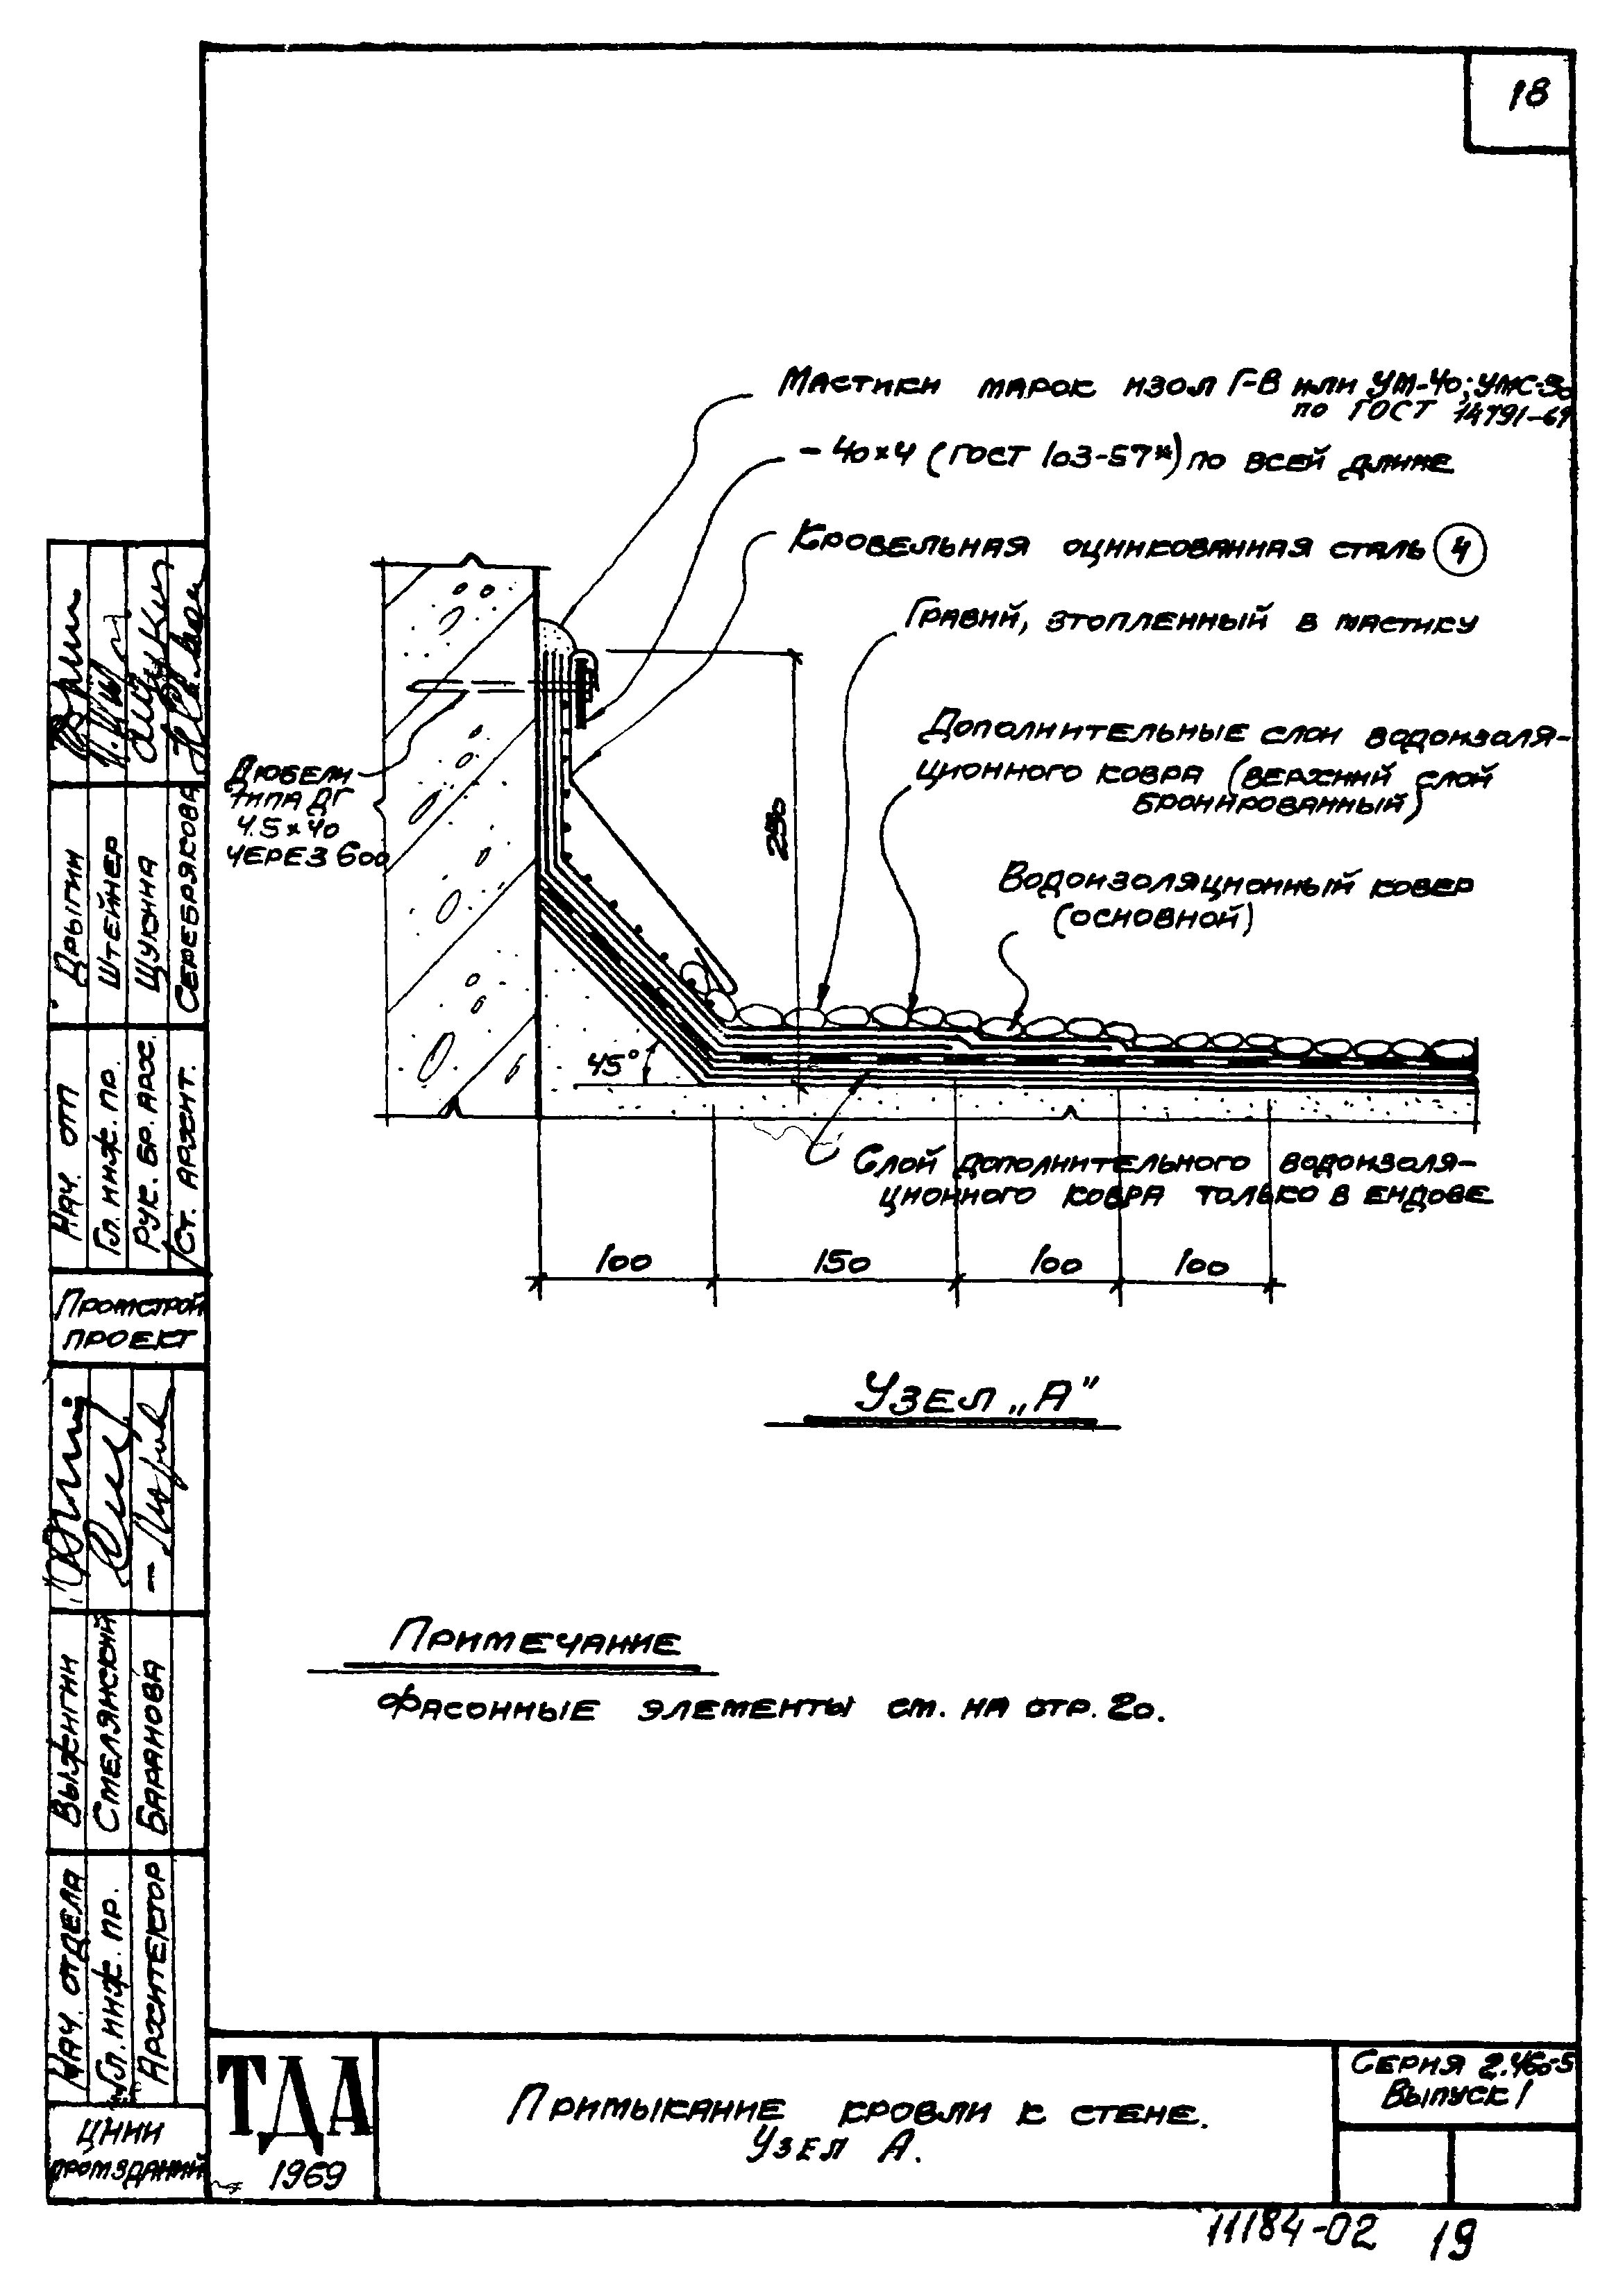 18
Мастики марок изол Г-В или УМ-40; УМС-50
по ГОСТ 14791-69
- 40×4 (ГОСТ 103-57*) по всей длине
Кровельная оцинкованная сталь 4
Гравий, зтопленный в мастику
Дополнительные слои водоизоля-
ционного ковра (верхний слой
бронированный)
Водоизоляционный ковер
(основной)
Дюбели
типа ДГ
4.5×40
через 600
250
45°
Слой дополнительного водоизоля-
ционного ковра только в ендове
100 150 100 100
Узел „А"
Примечание
Фасонные элементы см. на стр. 20.
Нач. отп Дрыгин
Гл. инж. пр. Штейнер
Рук. бр. арх. Щукина
Ст. архит. Серебрякова
Промстрой
проект
Нач. отдела Выжигин
Гл. инж. пр. Смелянский
Архитектор Баранова
ЦНИИ
промзданий
ТДА
1969
Примыкание кровли к стене.
Узел А.
Серия 2.460-5
Выпуск 1
11184-02 19